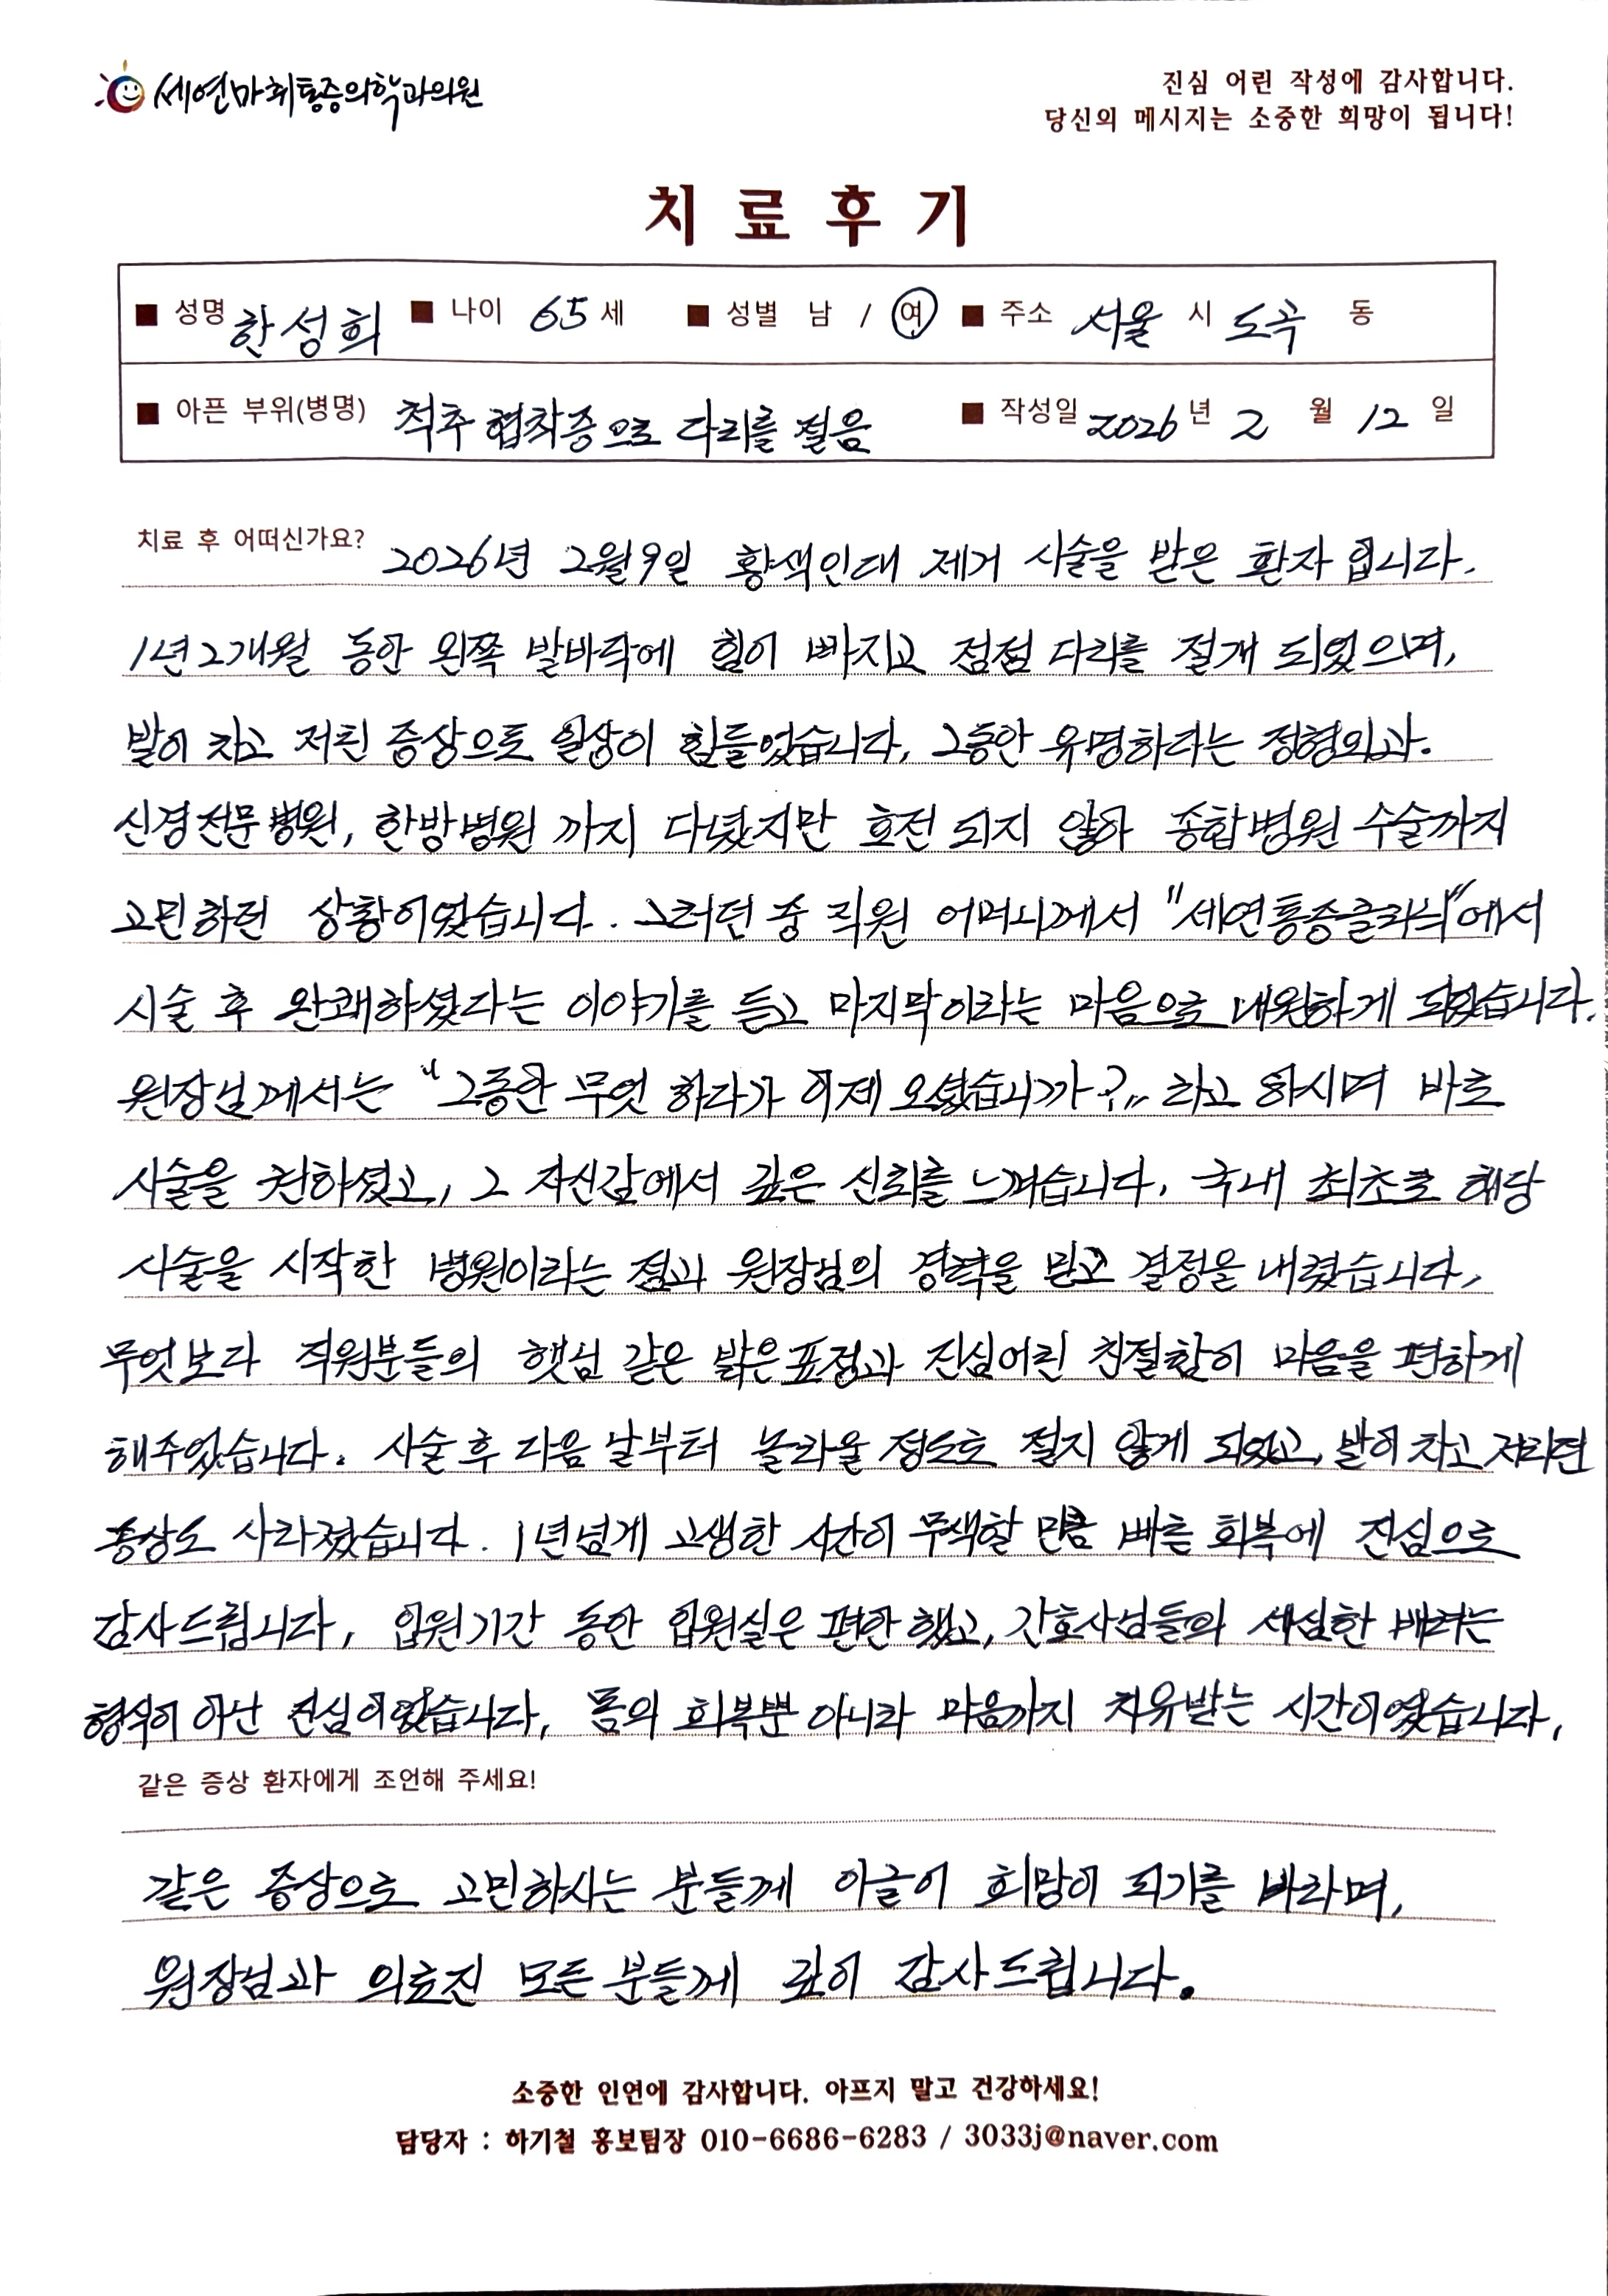 세연마취통증의학과의원
진심 어린 작성에 감사합니다.
당신의 메시지는 소중한 희망이 됩니다!
치료후기
■ 성명 한성희 ■ 나이 65 세 ■ 성별 남 / 여 ■ 주소 서울 시 도곡 동
■ 아픈 부위(병명) 척추 협착증으로 다리를 절음 ■ 작성일 2026 년 2 월 12 일
치료 후 어떠신가요? 2026년 2월 9일 황색인대 제거 시술을 받은 환자 입니다.
1년 2개월 동안 왼쪽 발바닥에 힘이 빠지고 점점 다리를 절게 되었으며,
발이 차고 저린 증상으로 일상이 힘들었습니다, 그동안 유명하다는 정형외과.
신경전문병원, 한방병원 까지 다녔지만 호전 되지 않아 종합병원 수술까지
고민하던 상황이었습니다. 그러던 중 직원 어머니께서 "세연통증클리닉"에서
시술 후 완쾌하셨다는 이야기를 듣고 마지막이라는 마음으로 내원하게 되었습니다.
원장님께서는 "그동안 무엇 하다가 이제 오셨습니까?" 라고 하시며 바로
시술을 권하셨고, 그 자신감에서 깊은 신뢰를 느껴습니다. 국내 최초로 해당
시술을 시작한 병원이라는 점과 원장님의 경력을 믿고 결정을 내렸습니다,
무엇보다 직원분들의 햇님 같은 밝은 표정과 진심어린 친절함이 마음을 편하게
해주었습니다. 시술 후 다음 날부터 놀라울 정도로 절지 않게 되었고, 발이 차고 저리던
증상도 사라졌습니다. 1년넘게 고생한 시간이 무색할 만큼 빠른 회복에 진심으로
감사드립니다, 입원기간 동안 입원실은 편안했고, 간호사님들의 세심한 배려는
형식이 아닌 진심이었습니다, 몸의 회복뿐 아니라 마음까지 치유받는 시간이였습니다,
같은 증상 환자에게 조언해 주세요!
같은 증상으로 고민하시는 분들께 이글이 희망이 되기를 바라며,
원장님과 의료진 모든 분들께 깊이 감사드립니다.
소중한 인연에 감사합니다. 아프지 말고 건강하세요!
담당자 : 하기철 홍보팀장 010-6686-6283 / 3033j@naver.com